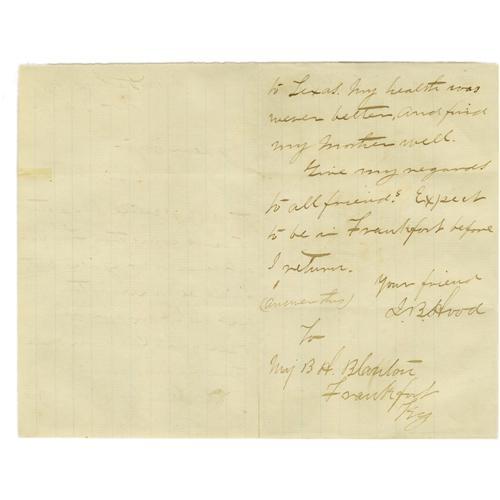 to Texas. My health was
never better, and find
my Mother well.
Give my regards
to all friends. Expect
to be in Frankfort before
I return.
Your friend
(answer this)
J.B. Hood
To
Mj B H. Blanton
Frankfort
Ky